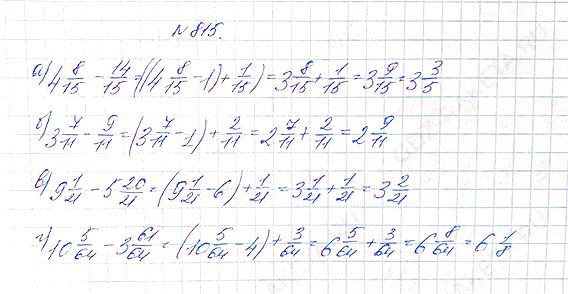 № 815.
а) 4 8/15 − 14/15 = ((4 8/15 − 1) + 1/15) = 3 8/15 + 1/15 = 3 9/15 = 3 3/5
б) 3 7/11 − 9/11 = (3 7/11 − 1) + 2/11 = 2 7/11 + 2/11 = 2 9/11
в) 9 1/21 − 5 20/21 = (9 1/21 − 6) + 1/21 = 3 1/21 + 1/21 = 3 2/21
г) 10 5/64 − 3 61/64 = (10 5/64 − 4) + 3/64 = 6 5/64 + 3/64 = 6 8/64 = 6 1/8